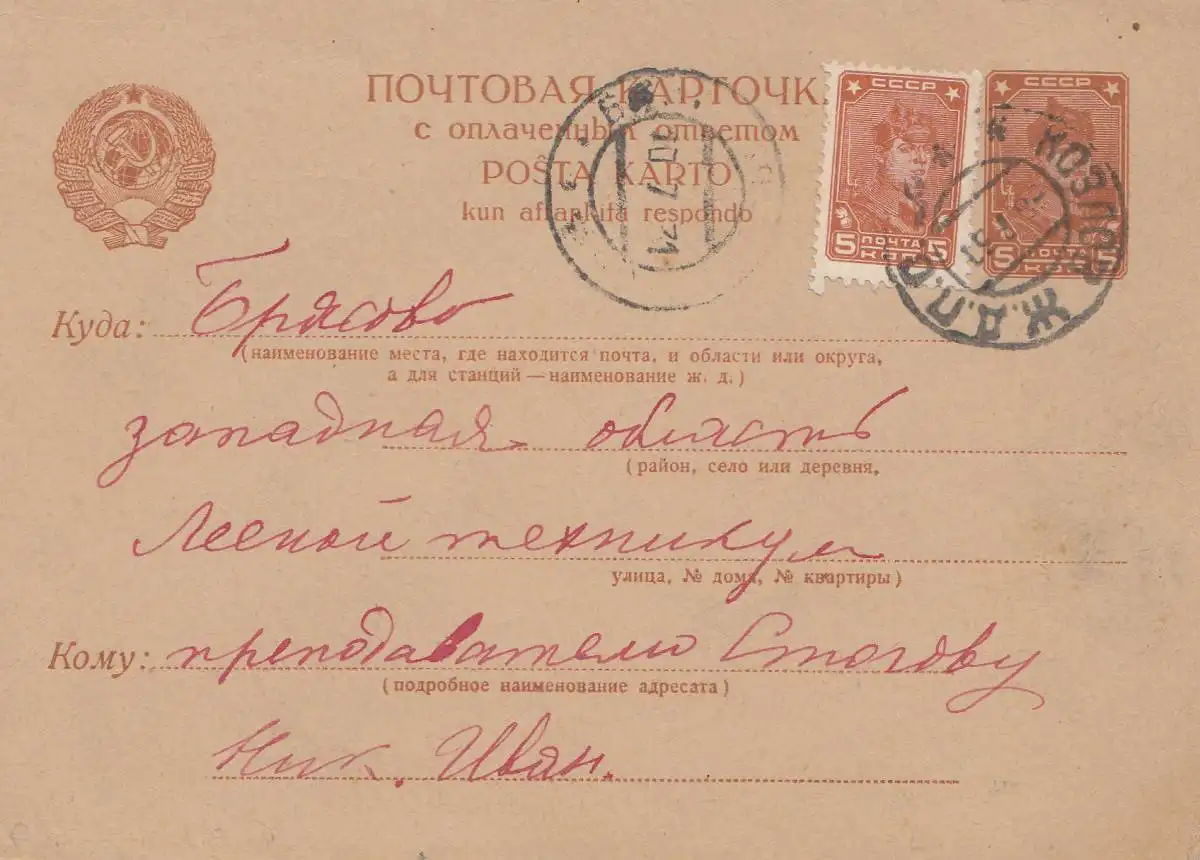 ПОЧТОВАЯ КАРТОЧК
с оплаченным ответом
POŜTA KARTO
kun afrankita respondo
СССР
5 ПОЧТА 5
КОП
СССР
5 ПОЧТА 5
КОП
КОЗЛОВ
Ж.Д.П.О
Куда: Брясово
(наименование места, где находится почта, и области или округа,
а для станций — наименование ж. д.)
западная область
(район, село или деревня,
Лесной техникум
улица, № дома, № квартиры)
Кому: преподавателю Стогову
(подробное наименование адресата)
Ник. Иван.